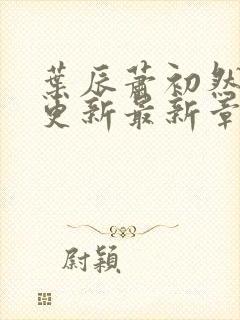 葉辰蕭初然
更新最新章
尉穎